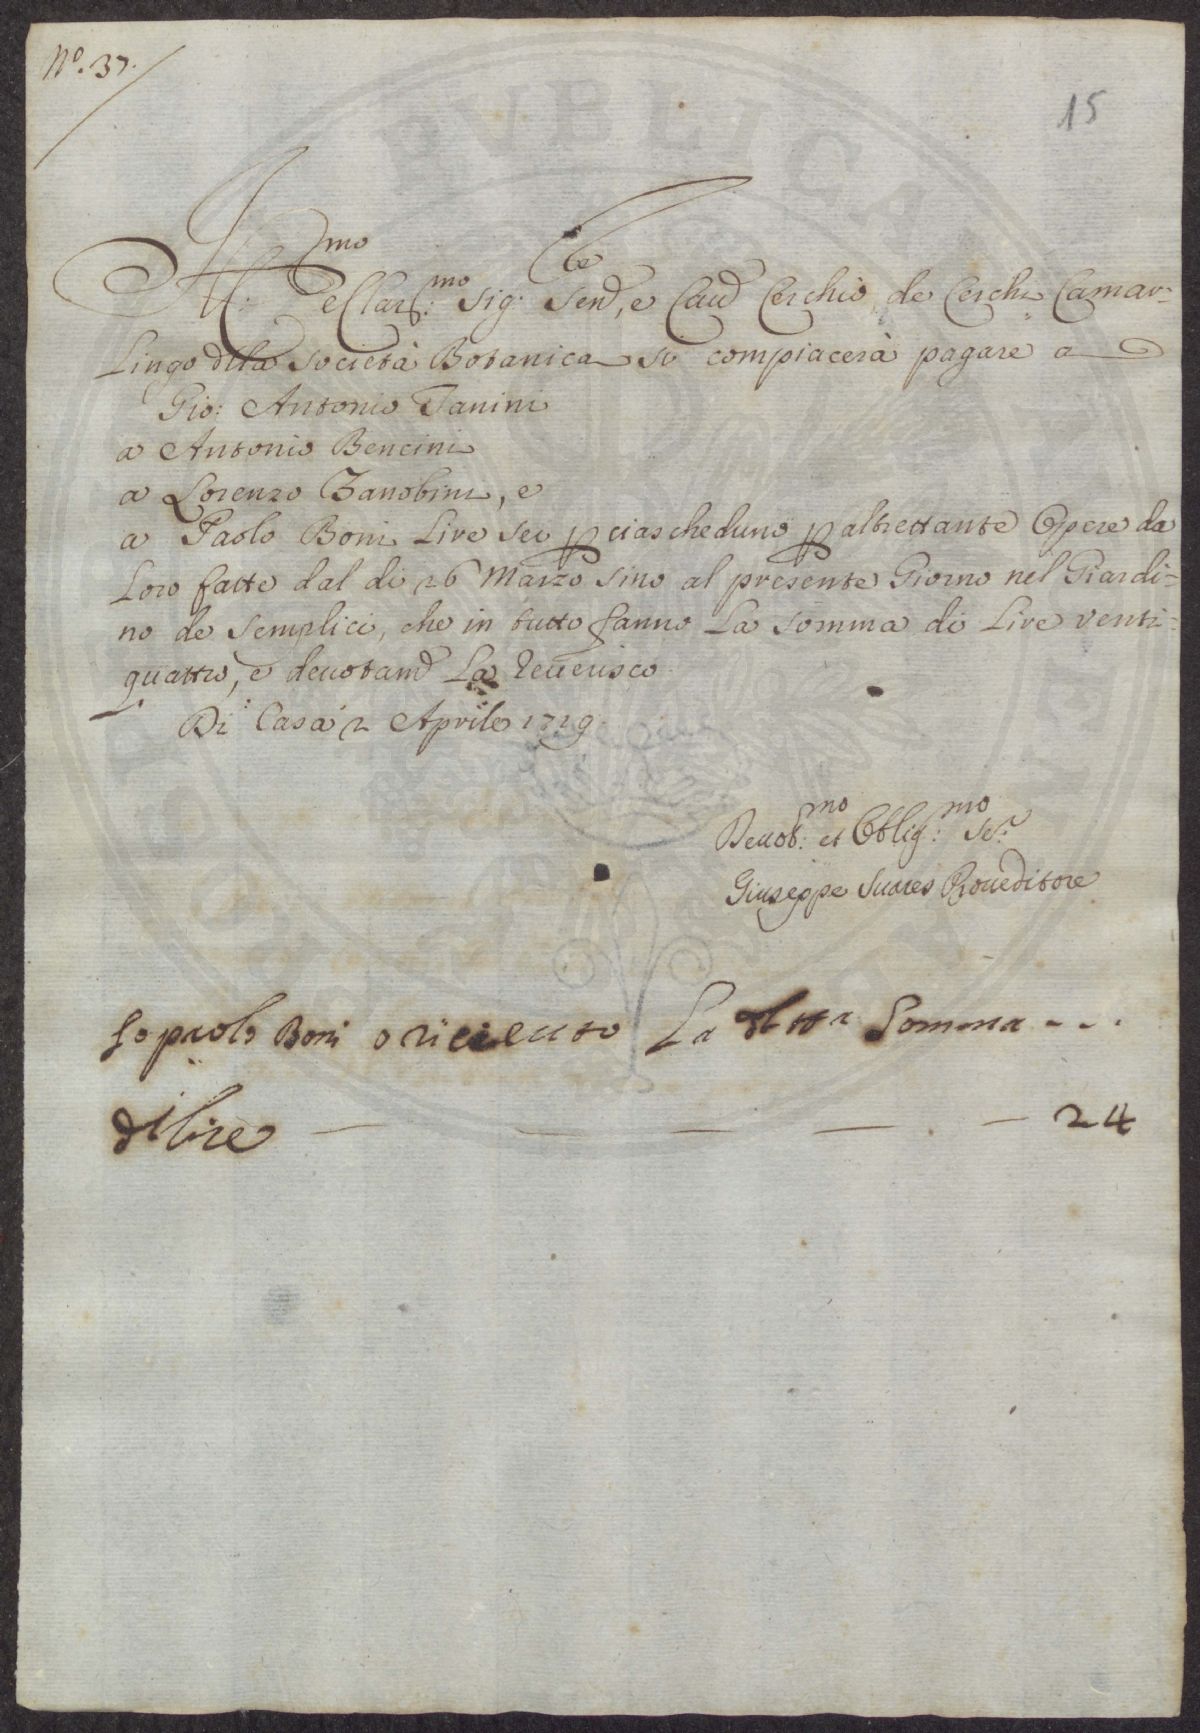 N.º 37.
15
Ill:mo e Clariss:mo Sig: Sen:re, e Cau:re Cerchio de Cerchi Camar=
Lingo della Società Botanica si compiacerà pagare a
Gio: Antonio Fanini
a Antonio Bencini
a Lorenzo Zanobini, e
a Paolo Boni Lire Sei p ciascheduno p altrettante Opere da
Loro fatte dal di 26 Marzo sino al presente Giorno nel Giardi=
no de Semplici, che in tutto fanno La somma di Lire venti=
quattro, e deuotam:e La Reuerisco
Di Casa 2 Aprile 1719
Deuot:mo et Oblig:mo Se:r
Giuseppe Suares Proueditore
Io paolo Boni o riceuto La detta Somma - - .
di lire — — — — . — 24
PVBLICA